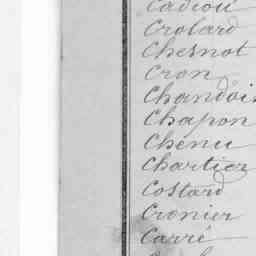 Cadiou
Crolard
Chesnot
Cron
Chandois
Chapon
Chenu
Chartier
Costard
Cronier
Carré